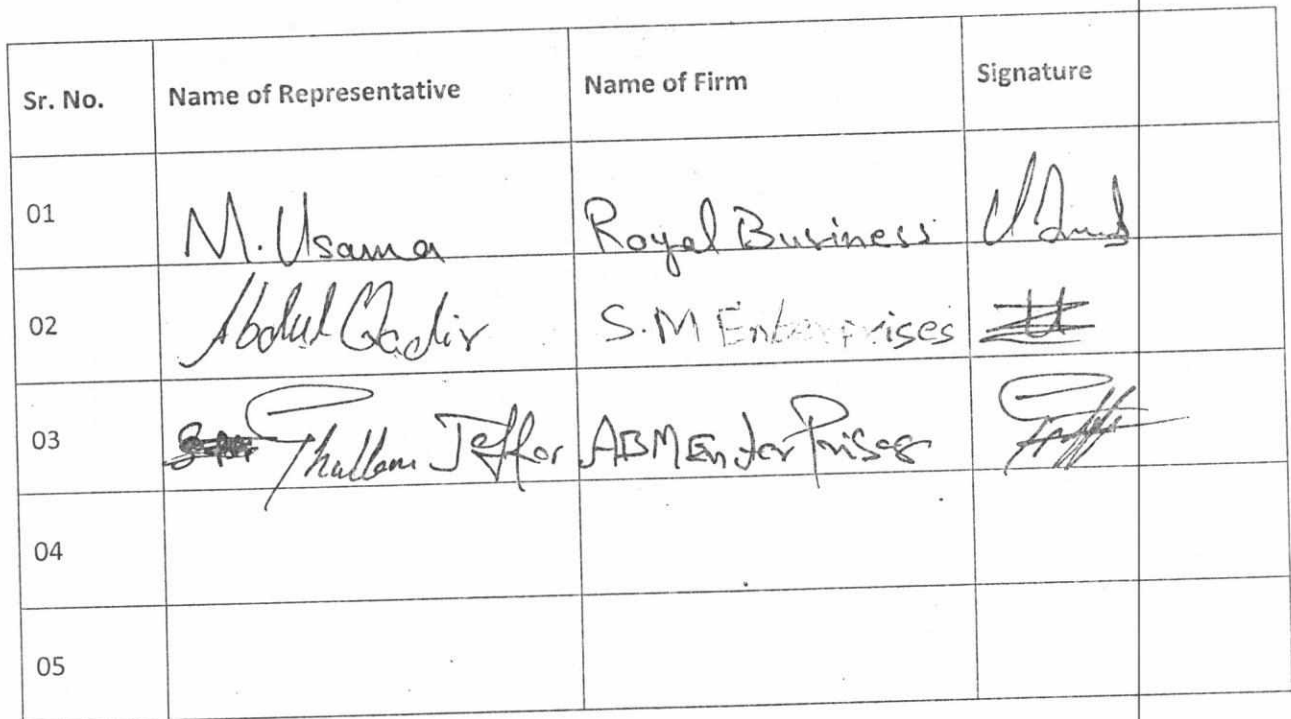 Sr. No. Name of Representative Name of Firm Signature
01 M. Usama Royal Business
02 Abdul Qadir S.M Enterprises
03 Ghullam Jaffar ABM Enter Prises
04
05